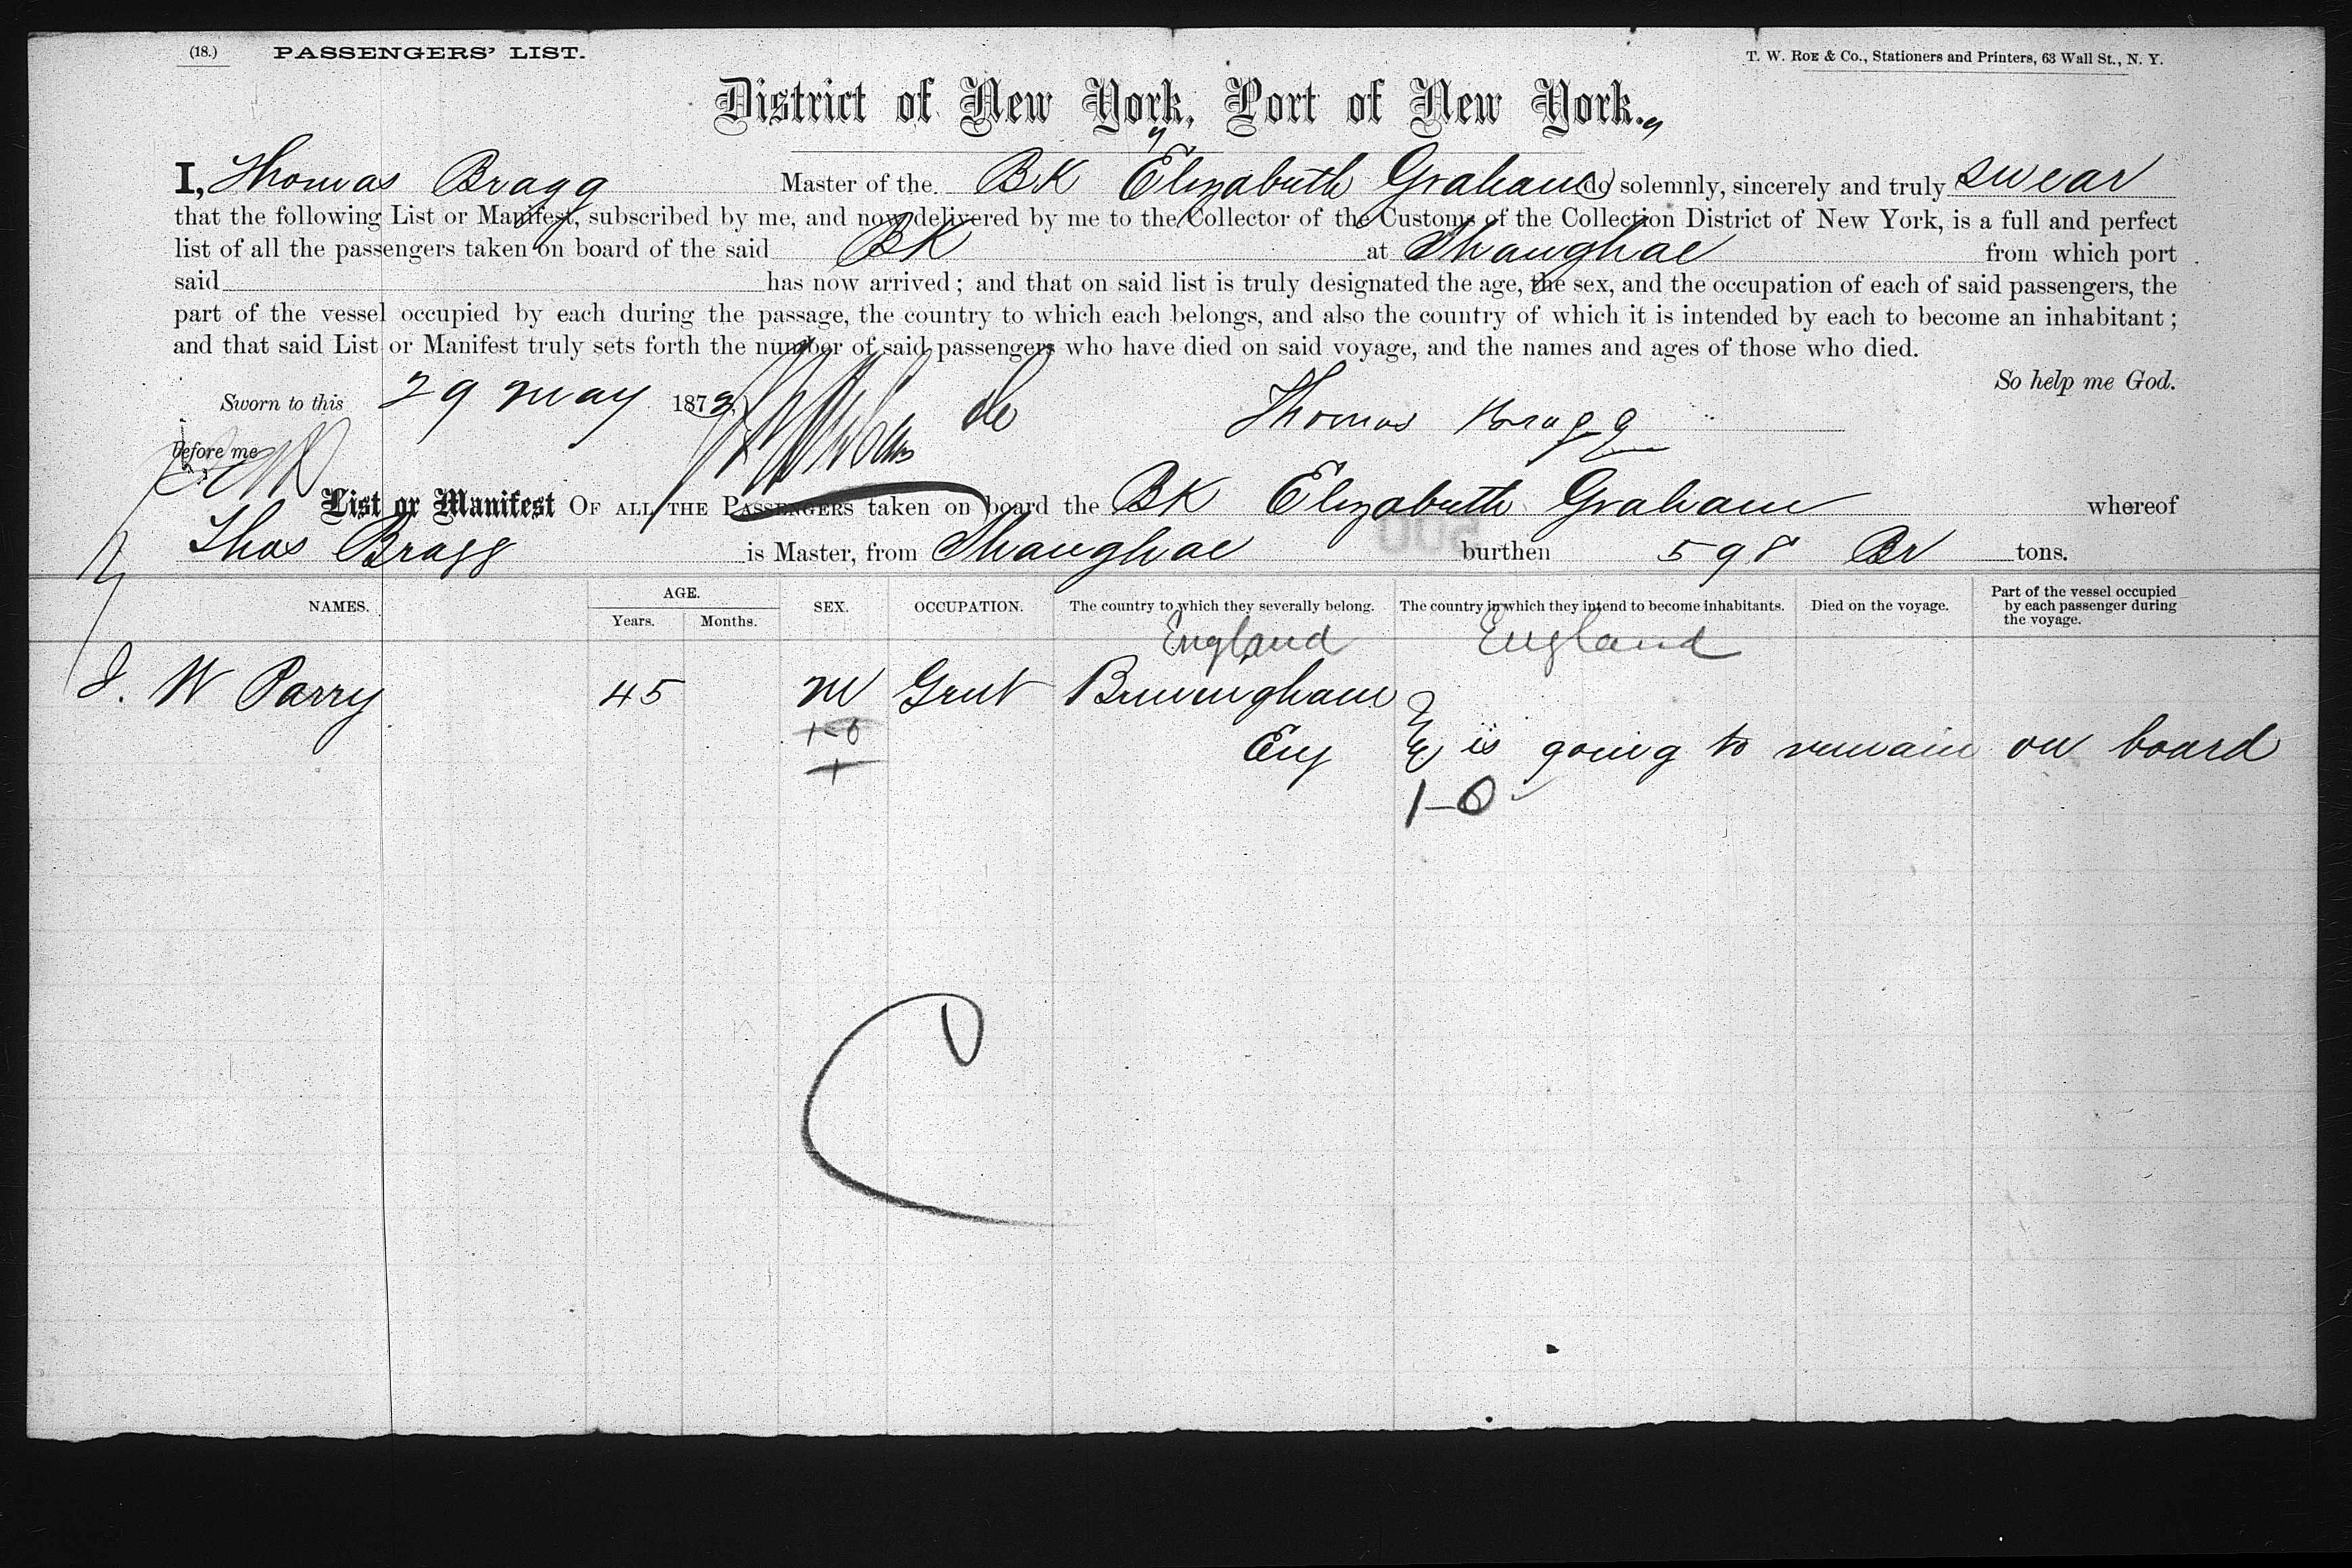 (18.) PASSENGERS' LIST.
T. W. ROE & Co., Stationers and Printers, 63 Wall St., N. Y.
District of New York, Port of New York.
I, Thomas Bragg Master of the BK "Elizabeth Graham" do solemnly, sincerely and truly swear
that the following List or Manifest, subscribed by me, and now delivered by me to the Collector of the Customs of the Collection District of New York, is a full and perfect
list of all the passengers taken on board of the said BK at Shanghae from which port
said has now arrived; and that on said list is truly designated the age, the sex, and the occupation of each of said passengers, the
part of the vessel occupied by each during the passage, the country to which each belongs, and also the country of which it is intended by each to become an inhabitant;
and that said List or Manifest truly sets forth the number of said passengers who have died on said voyage, and the names and ages of those who died.
So help me God.
Sworn to this 29 May 187
Thomas Bragg
before me
List or Manifest OF ALL THE PASSENGERS taken on board the BK Elizabeth Graham whereof
Thos Bragg is Master, from Shanghae burthen 598 Br tons.
NAMES. AGE. Years. Months. SEX. OCCUPATION. The country to which they severally belong. The country in which they intend to become inhabitants. Died on the voyage. Part of the vessel occupied by each passenger during the voyage.
England England
J. W Parry 45 M Gent Birmingham
1-0 Eng is going to remain on board
1
1-0